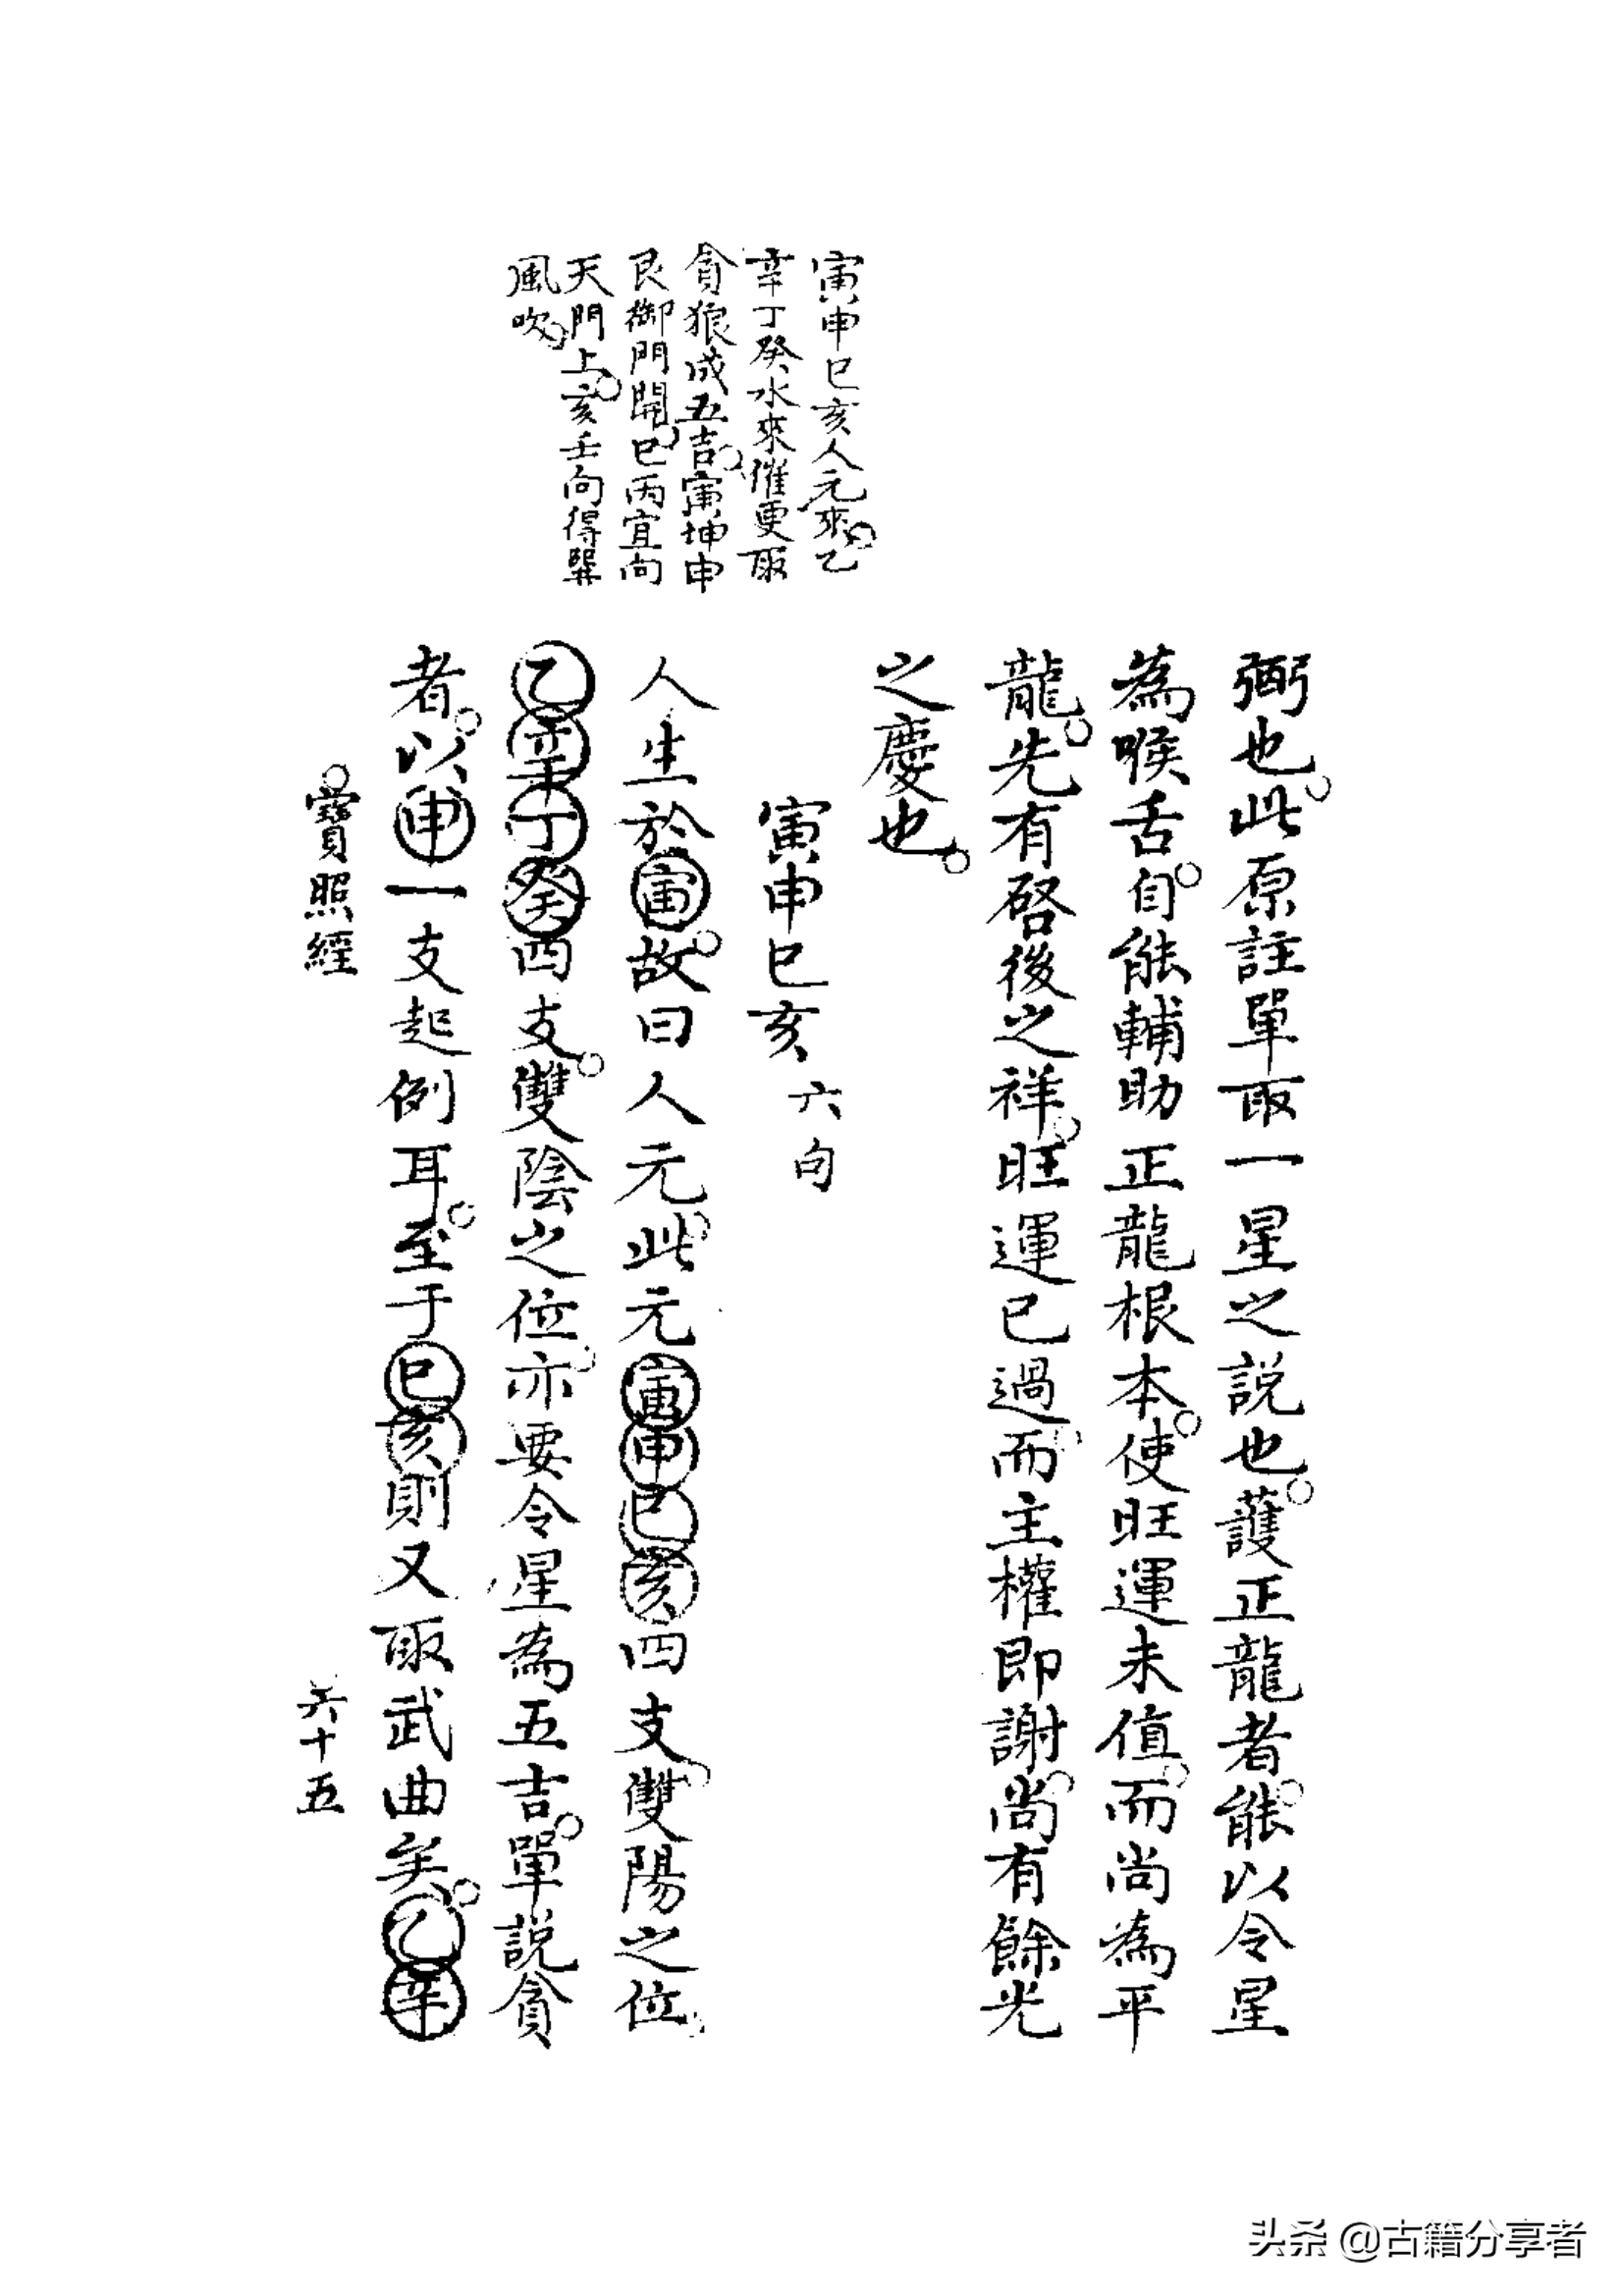 寅申巳亥人元來乙
辛丁癸水來催更取
貪狼成五吉寅坤申
艮御門開巳丙宜向
天門上亥壬向得巽
風吹
弼也此原註單取一星之説也護正龍者能以令星
為喉舌自能輔助正龍根本使旺運未值而尚為平
龍先有啓後之祥旺運已過而主權即謝尚有餘光
之慶也
寅申巳亥 六句
人生於寅故曰人元此元寅申巳亥四支雙陽之位
乙辛丁癸四支雙陰之位亦要令星為五吉單説貪
者以申一支起例耳至于巳亥則又取武曲矣乙辛
寶照經
六十五
头条 @古籍分享者